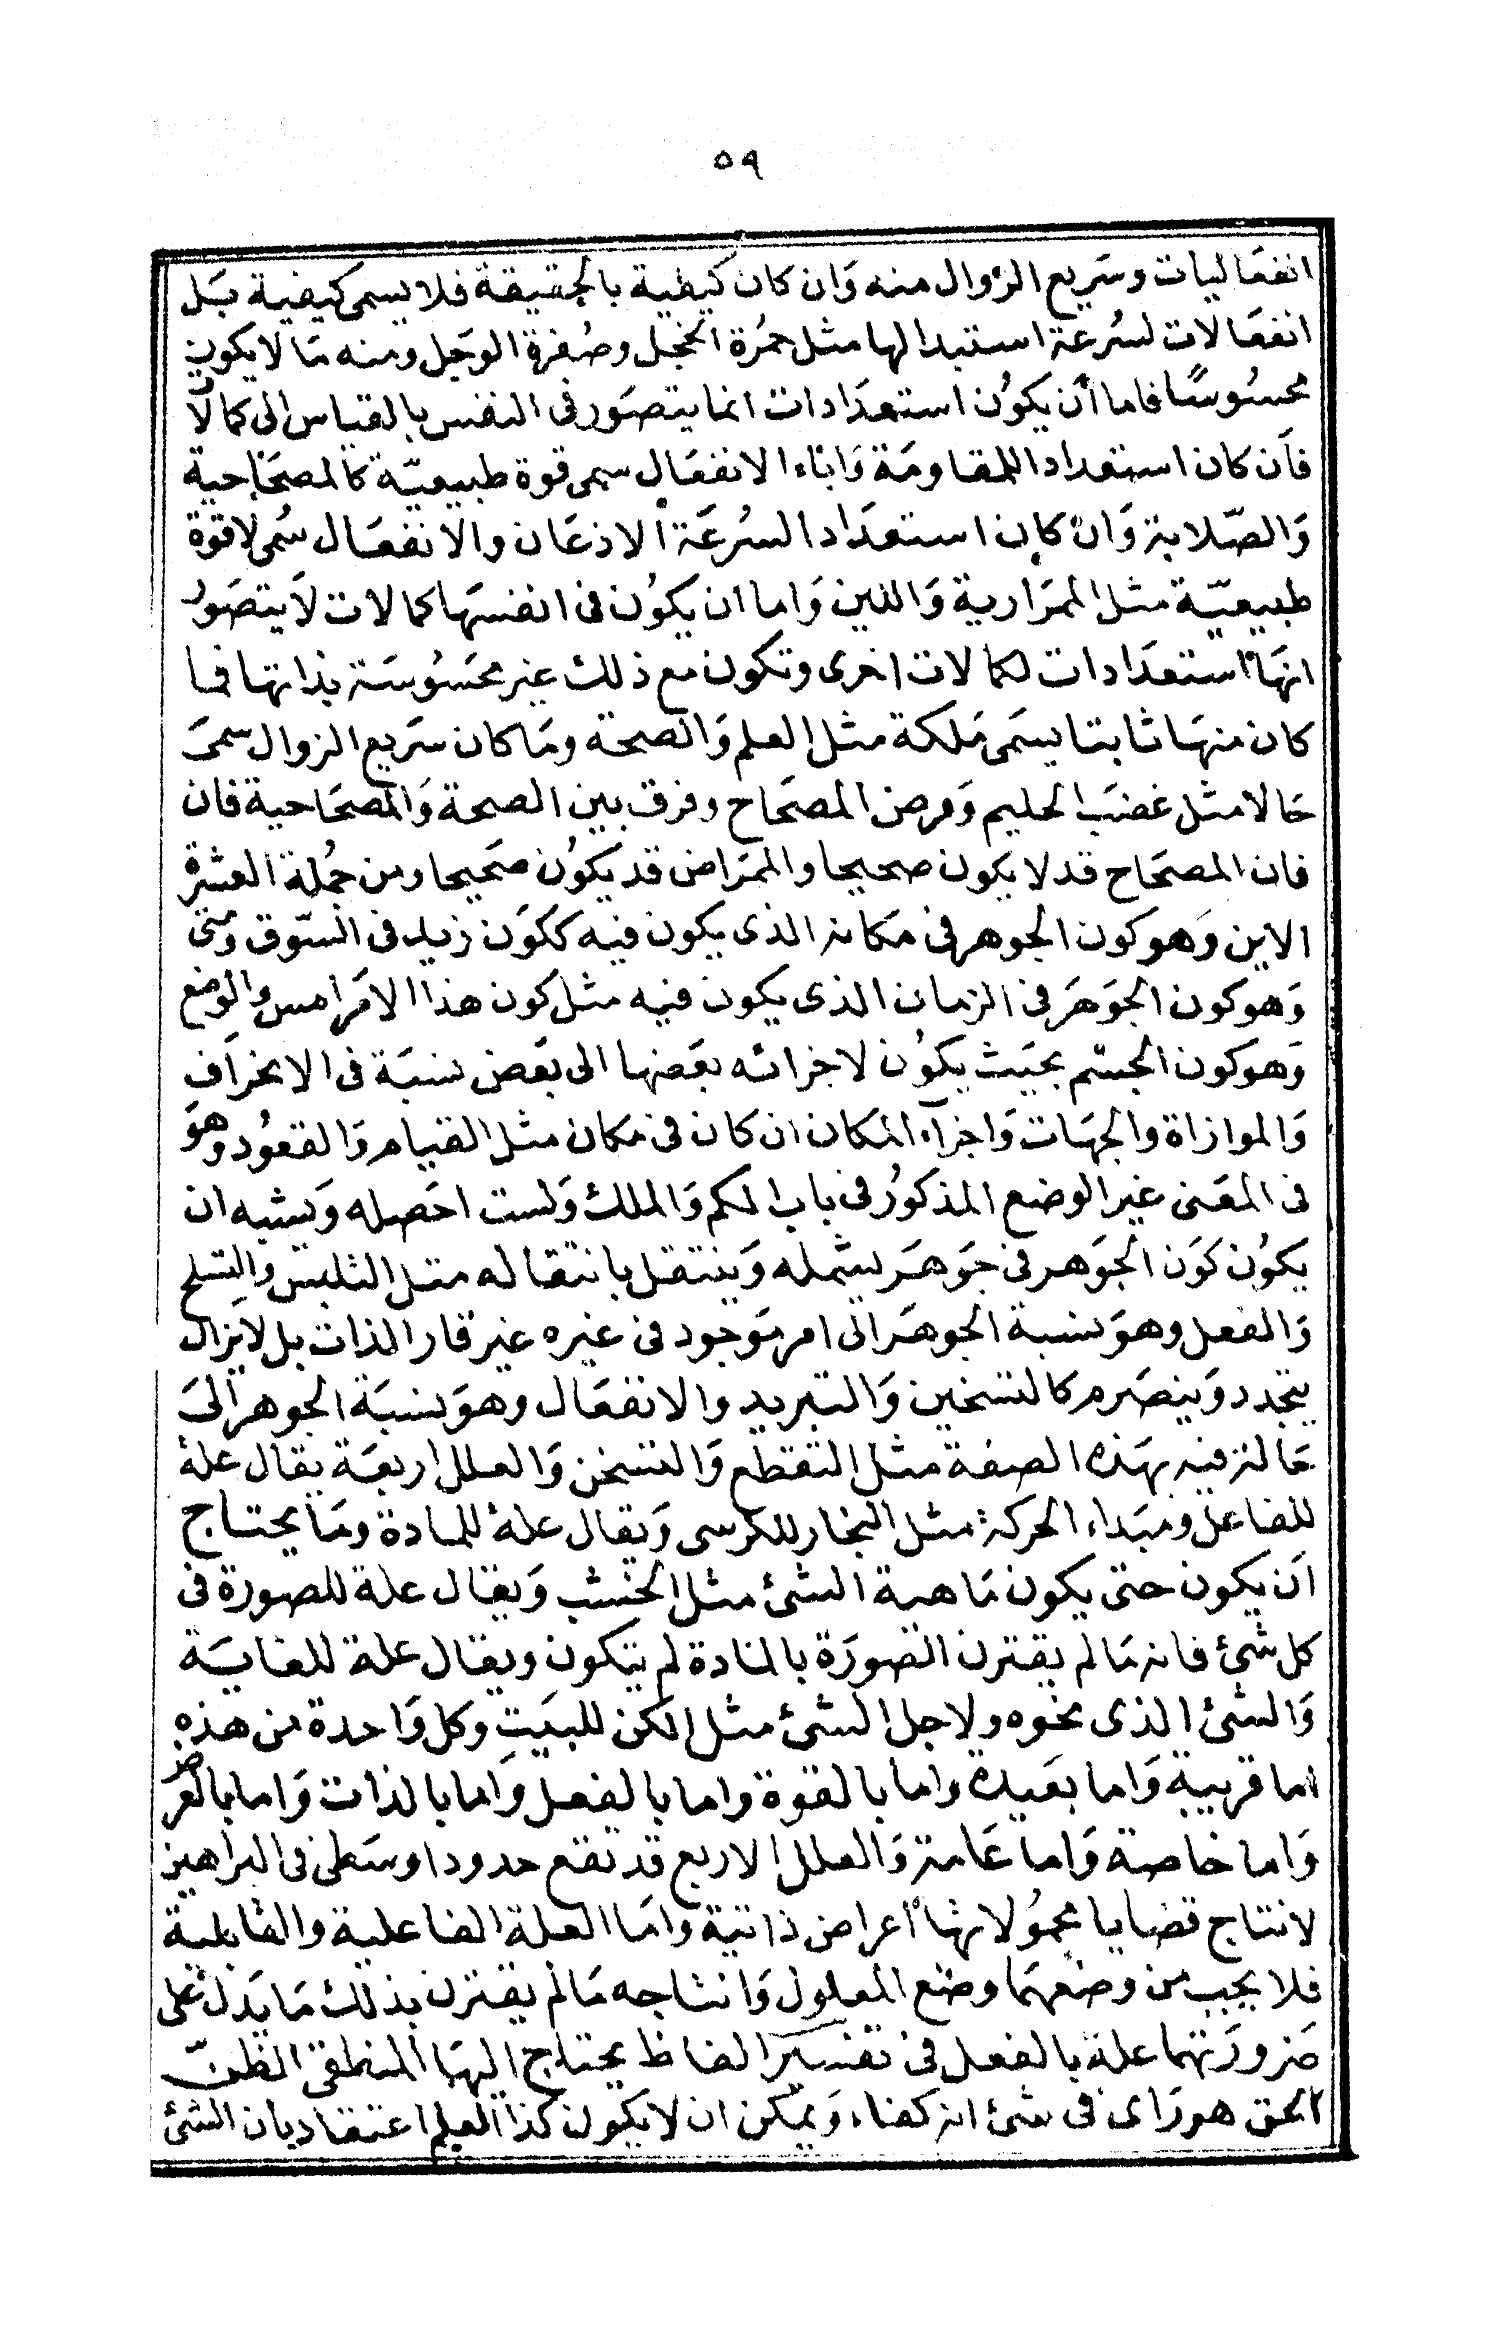 ٥٩
انفعاليات وسريع الزوال منه وان كان كيفية بالحقيقة فلا يسمى كيفية بل
انفعالات لسرعة استبدالها مثل حمرة الخجل وصفرة الوجل ومنه ما لا يكون
محسوسا فاما أن يكون استعدادات انما يتصور فى النفس بالقياس الى كمالات
فان كان استعدادا للمقاومة واباء الانفعال سمى قوة طبيعية كالمصحاحية
والصلابة وان كان استعدادا لسرعة الاذعان والانفعال سمى لا قوة
طبيعية مثل الممرارية واللين واما ان يكون فى انفسها كمالات لا يتصور
انها استعدادات لكمالات اخرى وتكون مع ذلك غير محسوسة بذاتها فما
كان منها ثابتا يسمى ملكة مثل العلم والصحة وما كان سريع الزوال سمى
حالا مثل غضب الحليم ومرض المصحاح وفرق بين الصحة والمصحاحية فان
فان المصحاح قد لا يكون صحيحا والممراض قد يكون صحيحا ومن جملة العشرة
الاين وهو كون الجوهر فى مكانه الذى يكون فيه ككون زيد فى السوق ومتى
وهو كون الجوهر فى الزمان الذى يكون فيه مثل كون هذا الامر امس والوضع
وهو كون الجسم بحيث يكون لاجزائه بعضها الى بعض نسبة فى الانحراف
والموازاة والجهات واجزاء المكان ان كان فى مكان مثل القيام والقعود وهو
فى المعنى غير الوضع المذكور فى باب الكم والملك ولست احصله ويشبه ان
يكون كون الجوهر فى جوهر يشمله وينتقل بانتقاله مثل التلبس والتسلح
والفعل وهو نسبة الجوهر الى امر موجود فى غيره غير قار الذات بل لا يزال
يتجدد وينصرم كالتسخين والتبريد والانفعال وهو نسبة الجوهر الى
حالة فيه بهذه الصفة مثل التقطع والتسخن والعلل اربعة يقال علة
للفاعل ومبداء الحركة مثل النجار للكرسى ويقال علة للمادة وما يحتاج
ان يكون حتى يكون ماهية الشئ مثل الخشب ويقال علة للصورة فى
كل شئ فانه ما لم يقترن الصورة بالمادة لم يتكون ويقال علة للغاية
والشئ الذى نحوه ولاجل الشئ مثل الكن للبيت وكل واحدة من هذه
اما قريبة واما بعيده واما بالقوة واما بالفعل واما بالذات واما بالعرض
واما خاصة واما عامة والعلل الاربع قد تقع حدودا وسطى فى البراهين
لانتاج قضايا محمولاتها أعراض ذاتية واما العلة الفاعلية والقابلية
فلا يجب من وضعهما وضع المعلول وانتاجه ما لم يقترن بذلك ما يدل على
ضرورتهما علة بالفعل فى تفسير الفاظ يحتاج اليها المنطقى الظن
الحق هو راى فى شئ انه كذا ويمكن ان لا يكون كذا العلم اعتقاد بان الشئ